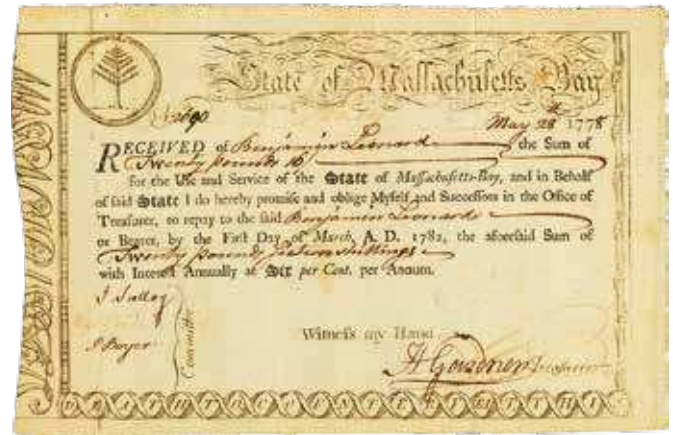 State of Massachusetts Bay
No 2690 May 28th 1778
RECEIVED of Benjamin Leonard the Sum of
Twenty pounds 16/
for the Use and Service of the State of Massachusetts-Bay, and in Behalf
of said State I do hereby promise and oblige Myself and Successors in the Office of
Treasurer, to repay to the said Benjamin Leonard
or Bearer, by the First Day of March, A. D. 1782, the aforesaid Sum of
Twenty pounds sixteen shillings
with Interest Annually at Six per Cent. per Annum.
Witness my Hand
Committee
H Gardner Treasurer